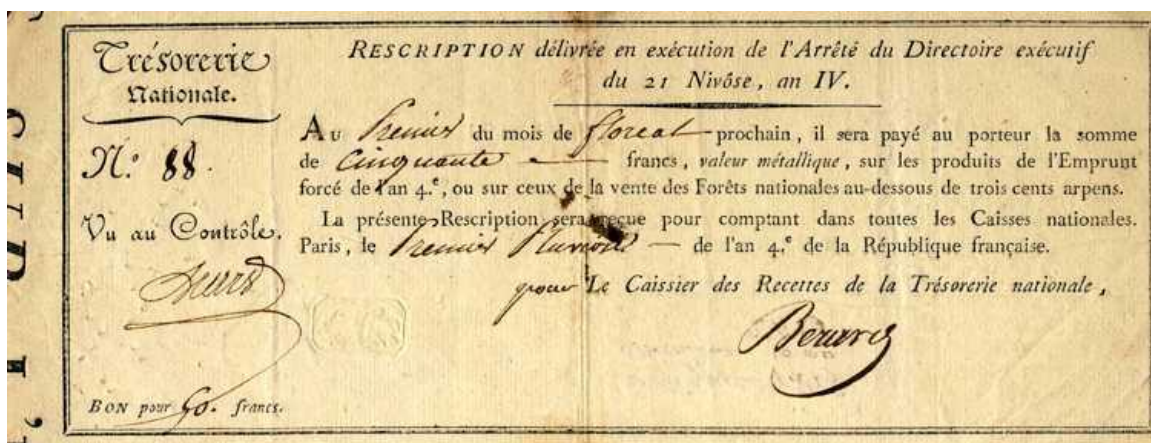 Trésorerie
Nationale.
N.º 88.
Vu au Contrôle.
BON pour 50. francs.
RESCRIPTION délivrée en exécution de l'Arrêté du Directoire exécutif
du 21 Nivôse, an IV.
Au Premier du mois de floreal prochain, il sera payé au porteur la somme
de Cinquante francs, valeur métallique, sur les produits de l'Emprunt
forcé de l'an 4.e, ou sur ceux de la vente des Forêts nationales au-dessous de trois cents arpens.
La présente Rescription sera reçue pour comptant dans toutes les Caisses nationales.
Paris, le Premier Pluviose — de l'an 4.e de la République française.
pour Le Caissier des Recettes de la Trésorerie nationale,